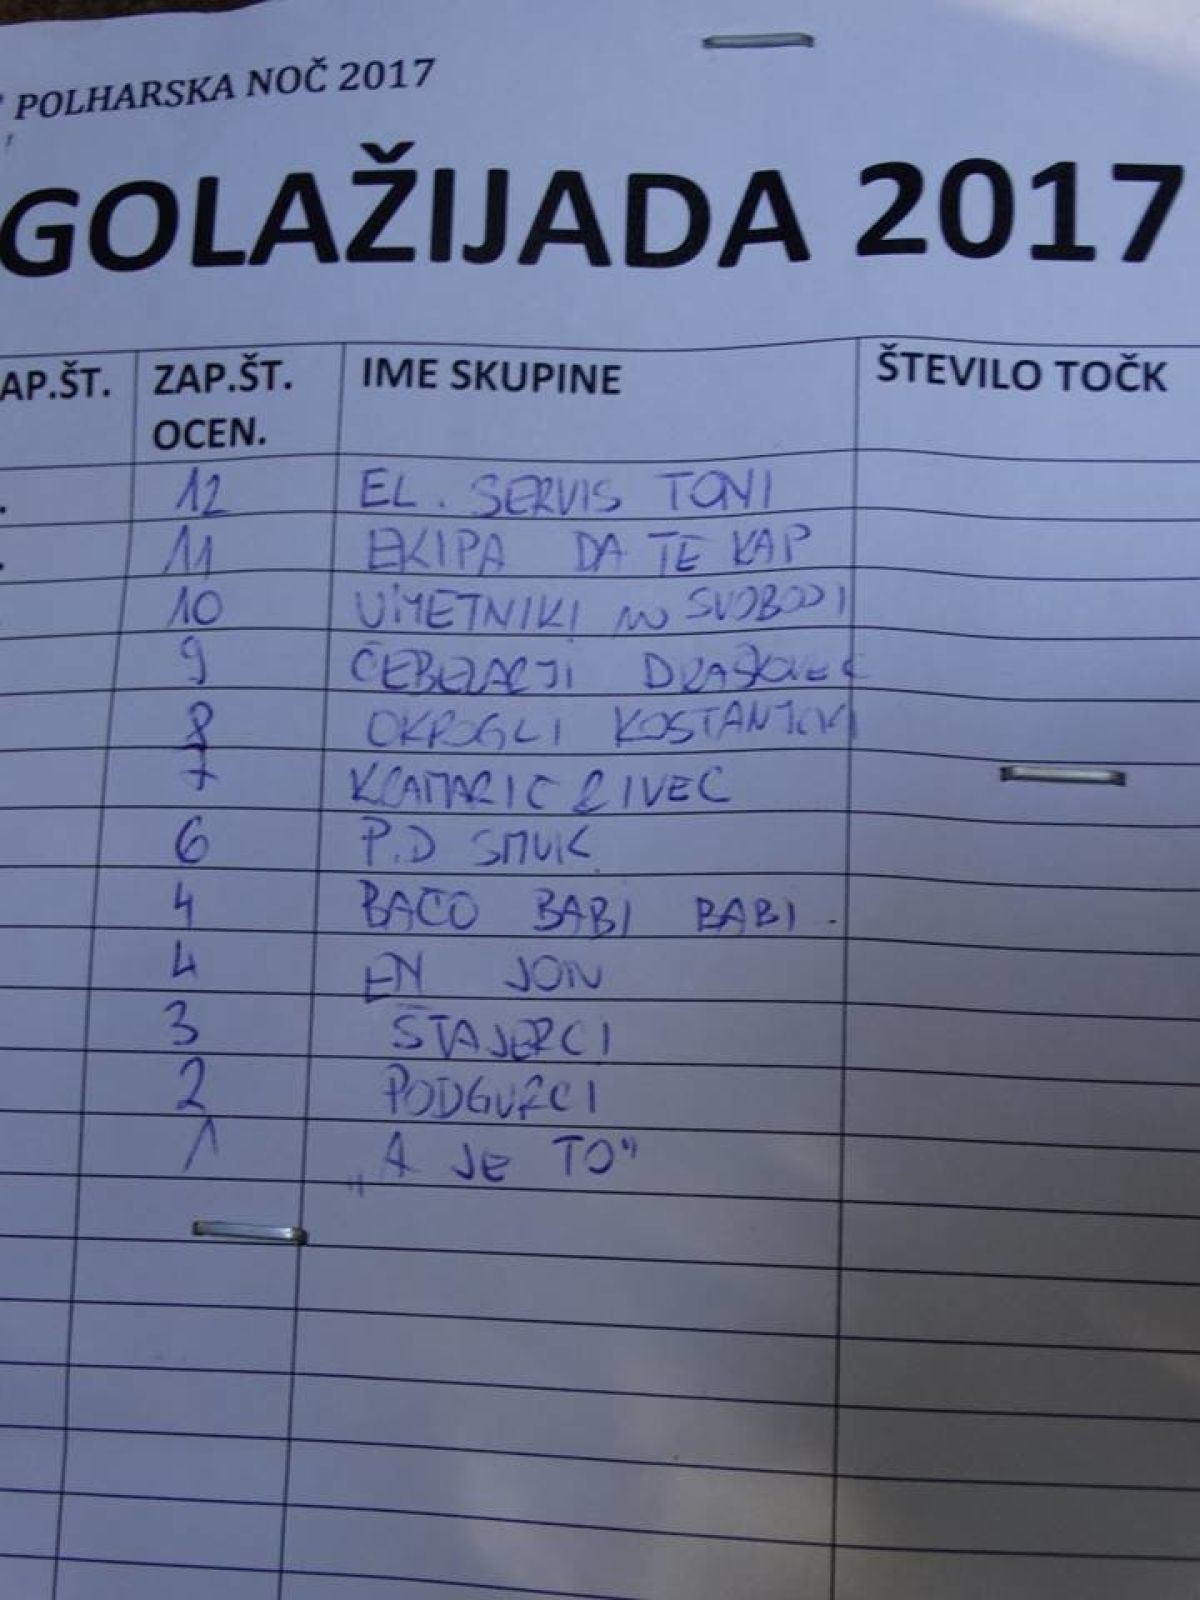 POLHARSKA NOČ 2017
GOLAŽIJADA 2017
AP.ŠT. ZAP.ŠT. OCEN. IME SKUPINE ŠTEVILO TOČK
12 EL. SERVIS TONI
11 EKIPA DA TE KAP
10 UMETNIKI SVOBODI
9 ČEBELARJI DRAŠKOVEC
8 OKROGLI KOSTANJOVI
7 KRAMARIČ & IVEC
6 P.D SMUK
4 BAČO BABI BABI.
4 EN JON
3 ŠTAJERCI
2 PODGURCI
1 „A JE TO"